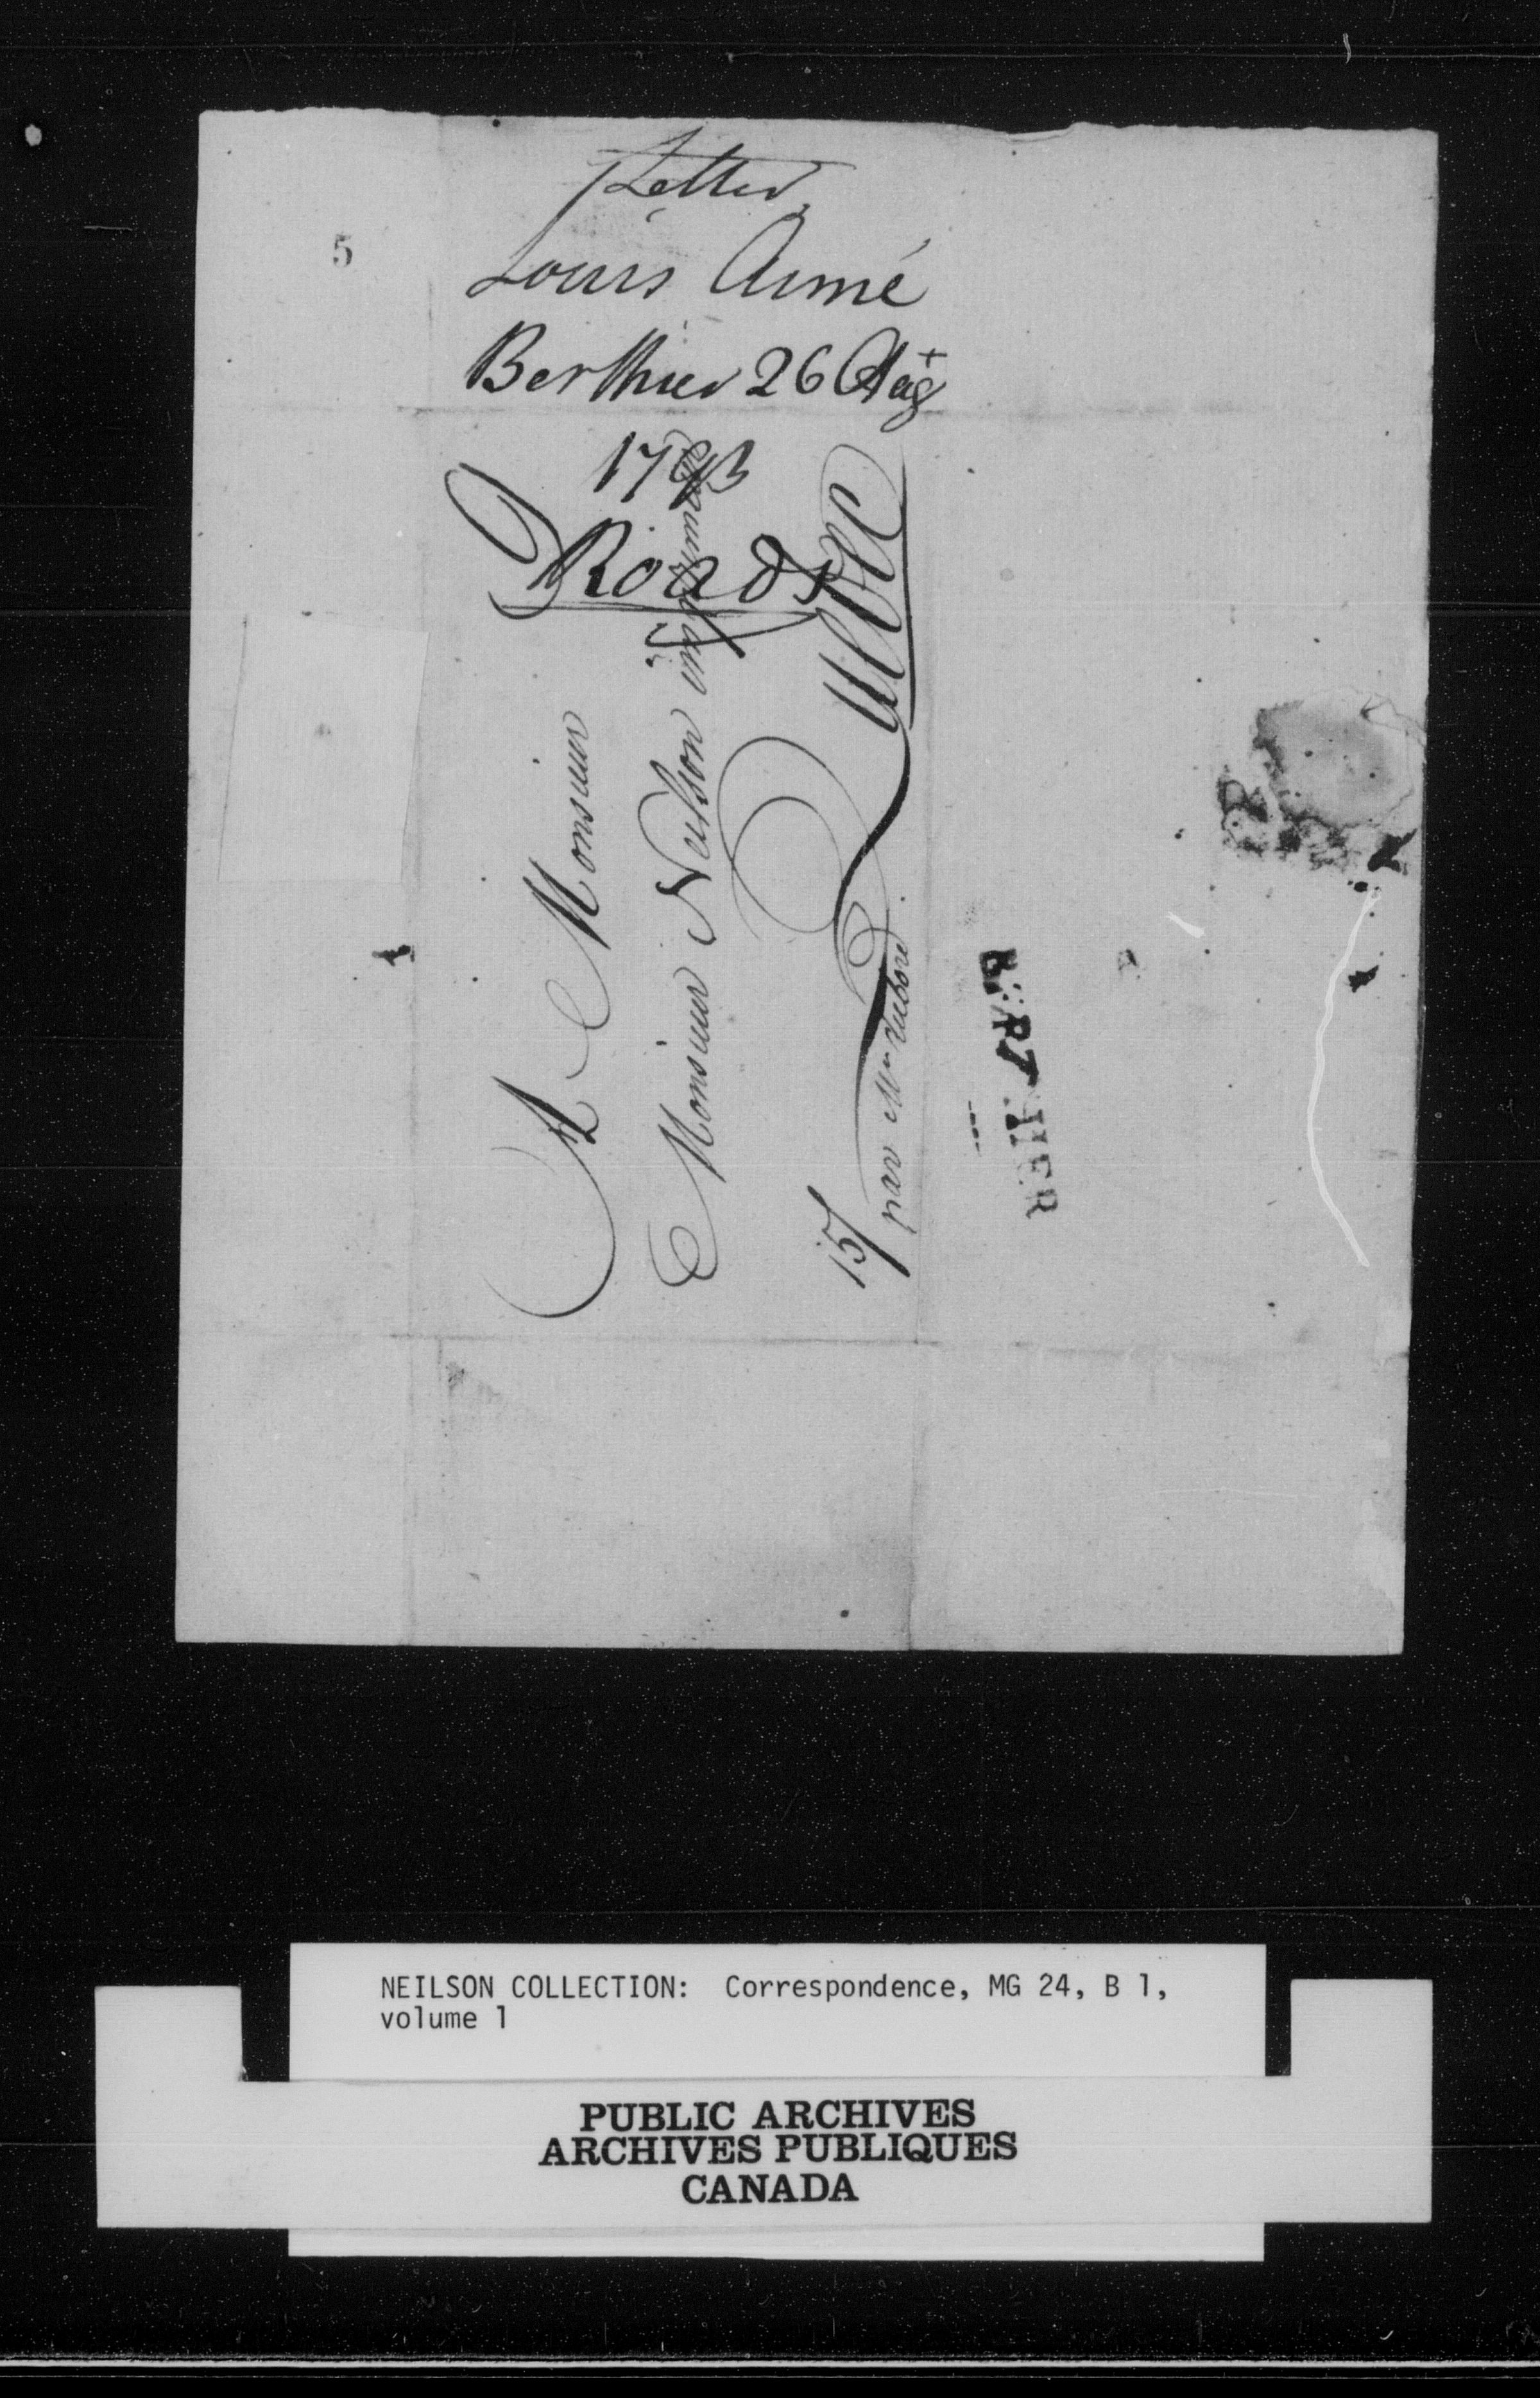 5
Letter
Louis Aimé
Berthier 26 Augt
1793
Roads
A Monsieur
Monsieur Neilson imprimeur
15/
par Mr
BERTHIER
NEILSON COLLECTION: Correspondence, MG 24, B 1,
volume 1
PUBLIC ARCHIVES
ARCHIVES PUBLIQUES
CANADA